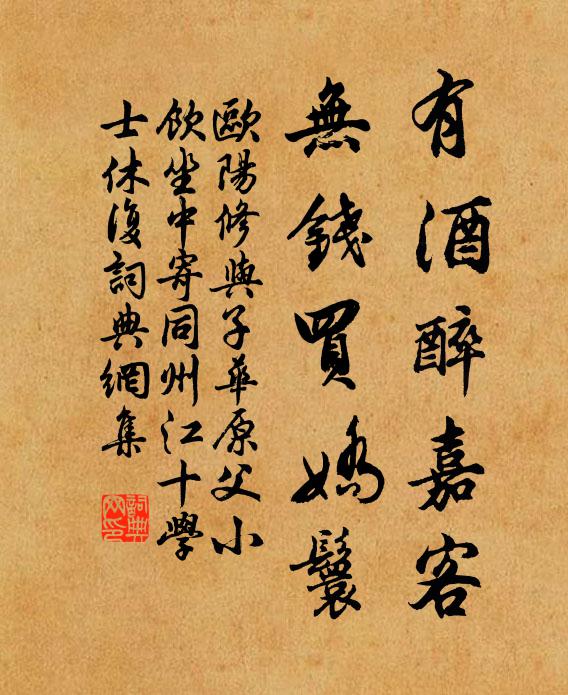 有酒醉嘉客
無錢買嬌鬟
歐陽修與子華原父小
飲坐中寄同州江十學
士休復詞典網集
詞典網印